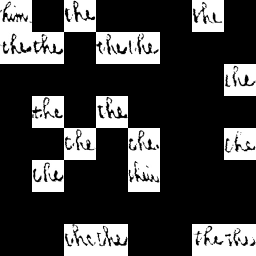 him the the
the the the the
the
the the
the the the
the this
the the the thes